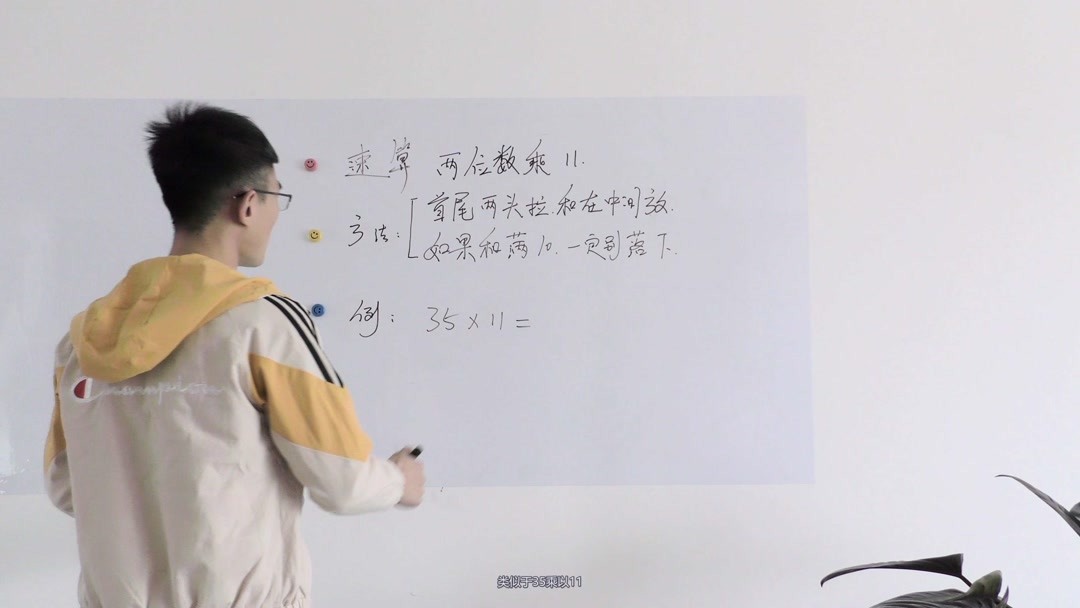 速算 两位数乘11.
方法: 首尾两头拉.和在中间放.
如果和满10.一定别落下.
例: 35×11=
Champion
类似于35乘以11